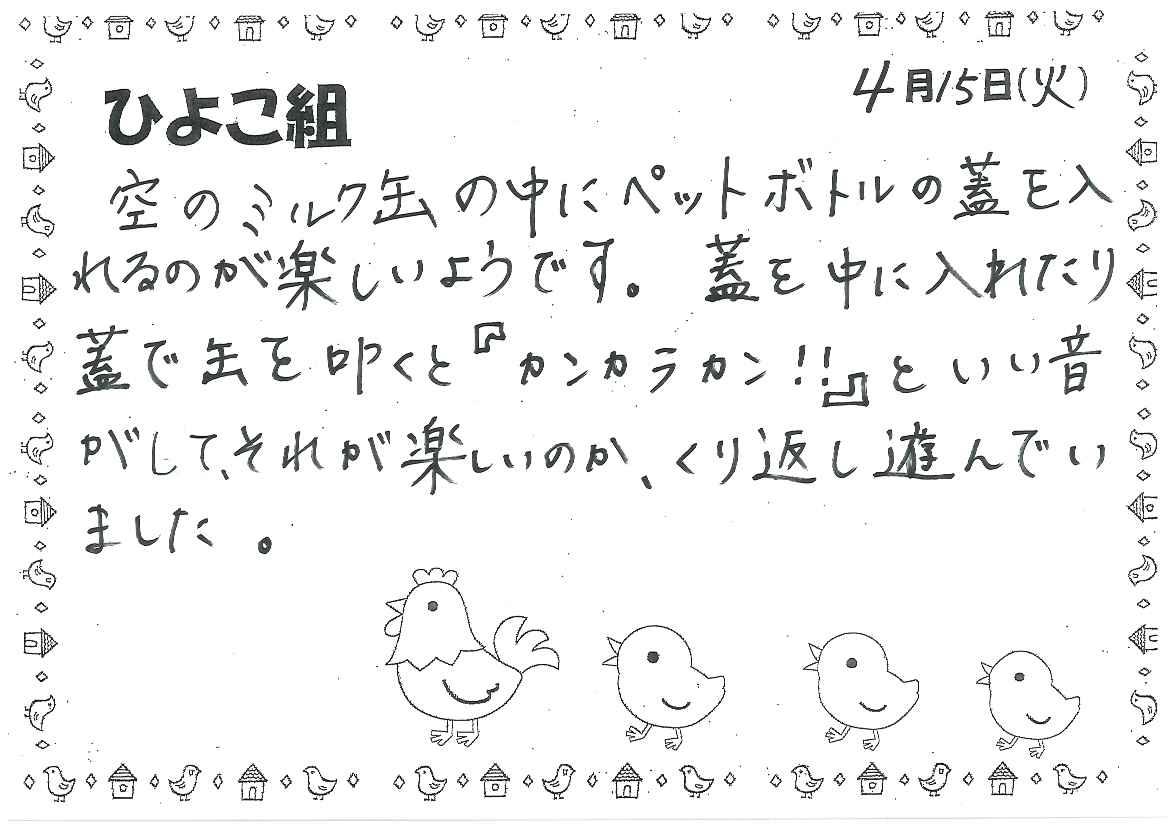 4月15日(火)
ひよこ組
空のミルク缶の中にペットボトルの蓋を入
れるのが楽しいようです。蓋を中に入れたり
蓋で缶を叩くと『カンカラカン!!』といい音
がして、それが楽しいのか、くり返し遊んでい
ました。